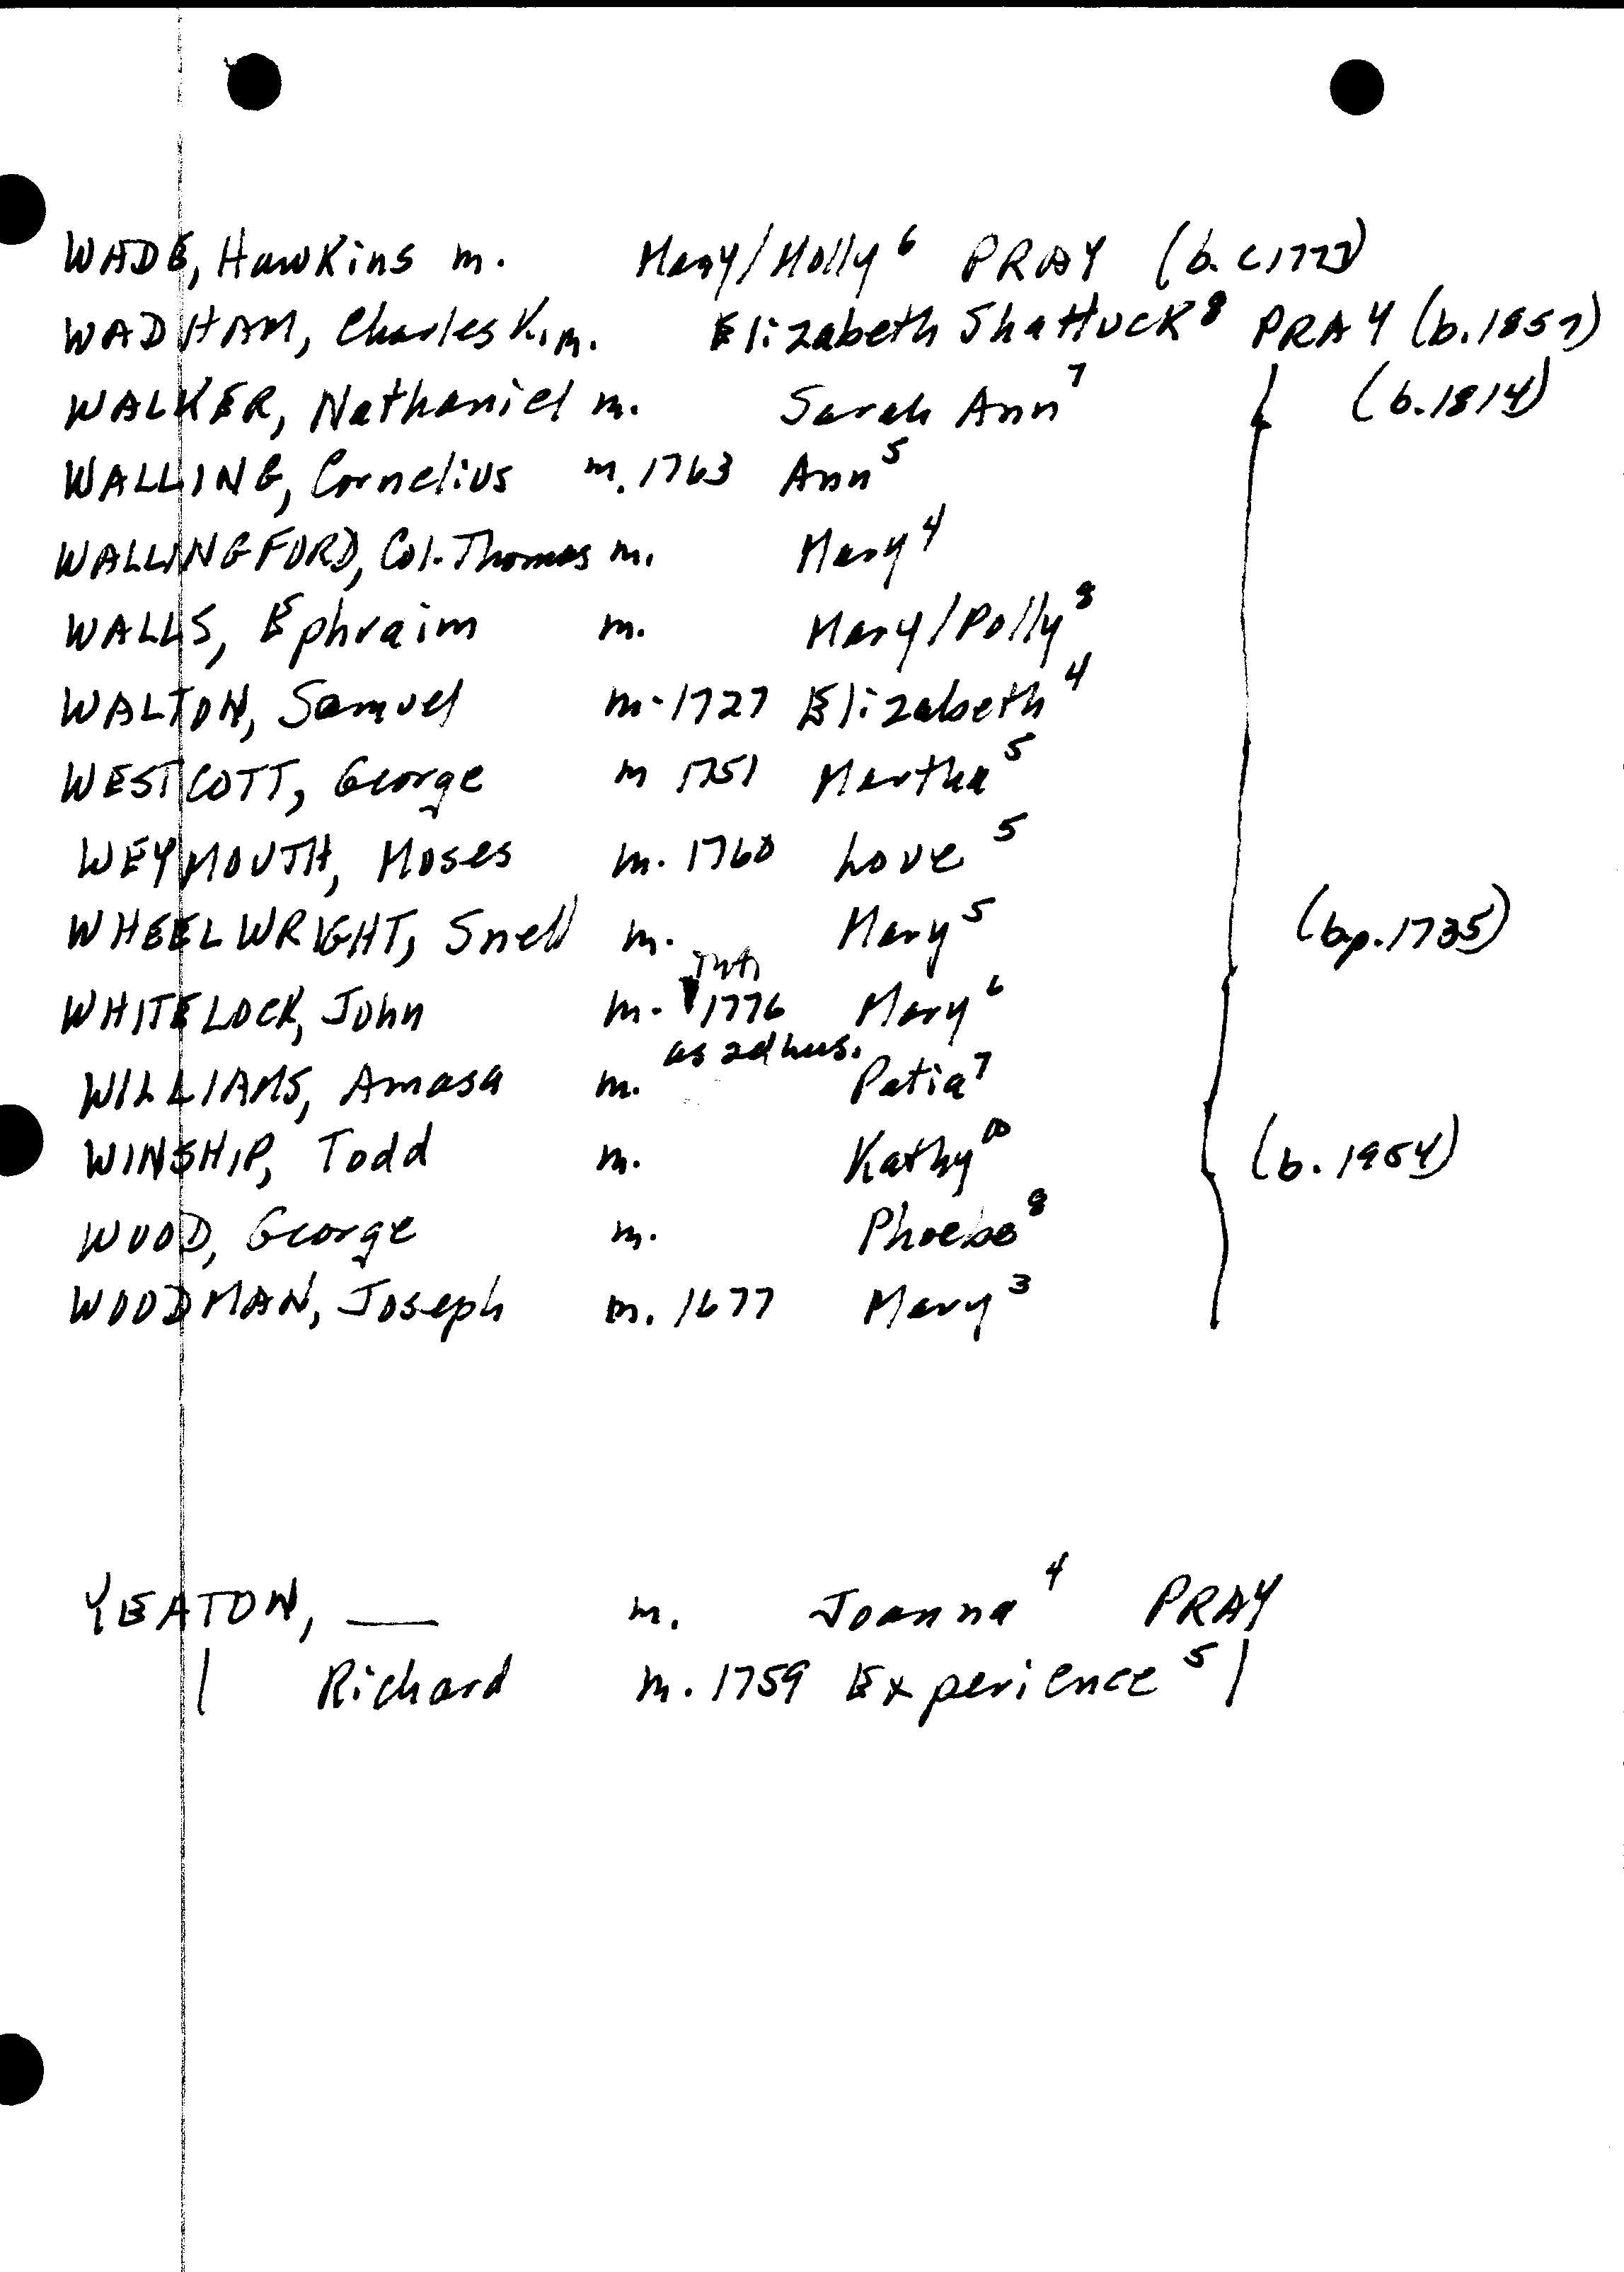 WADE, Hawkins m. Mary/Molly⁶ PRAY (b. c1777)
WADHAM, Charles K. m. Elizabeth Shattuck⁸ PRAY (b. 1857)
WALKER, Nathaniel m. Sarah Ann⁷ (b. 1814)
WALLING, Cornelius m. 1763 Ann⁵
WALLINGFORD, Col. Thomas m. Mary⁴
WALLS, Ephraim m. Mary/Polly⁸
WALTON, Samuel m. 1727 Elizabeth⁴
WESTCOTT, George m 1751 Martha⁵
WEYMOUTH, Moses m. 1760 Love⁵
WHEELWRIGHT, Snell m. Mary⁵ (bp. 1735)
int
WHITELOCK, John m. 1776 Mary⁶
as 2d hus.
WILLIAMS, Amasa m. Patia⁷
WINSHIP, Todd m. Kathy¹⁰ (b. 1954)
WOOD, George m. Phoebe⁸
WOODMAN, Joseph m. 1677 Mary³
YEATON, __ m. Joanna⁴ PRAY
Richard m. 1759 Experience⁵